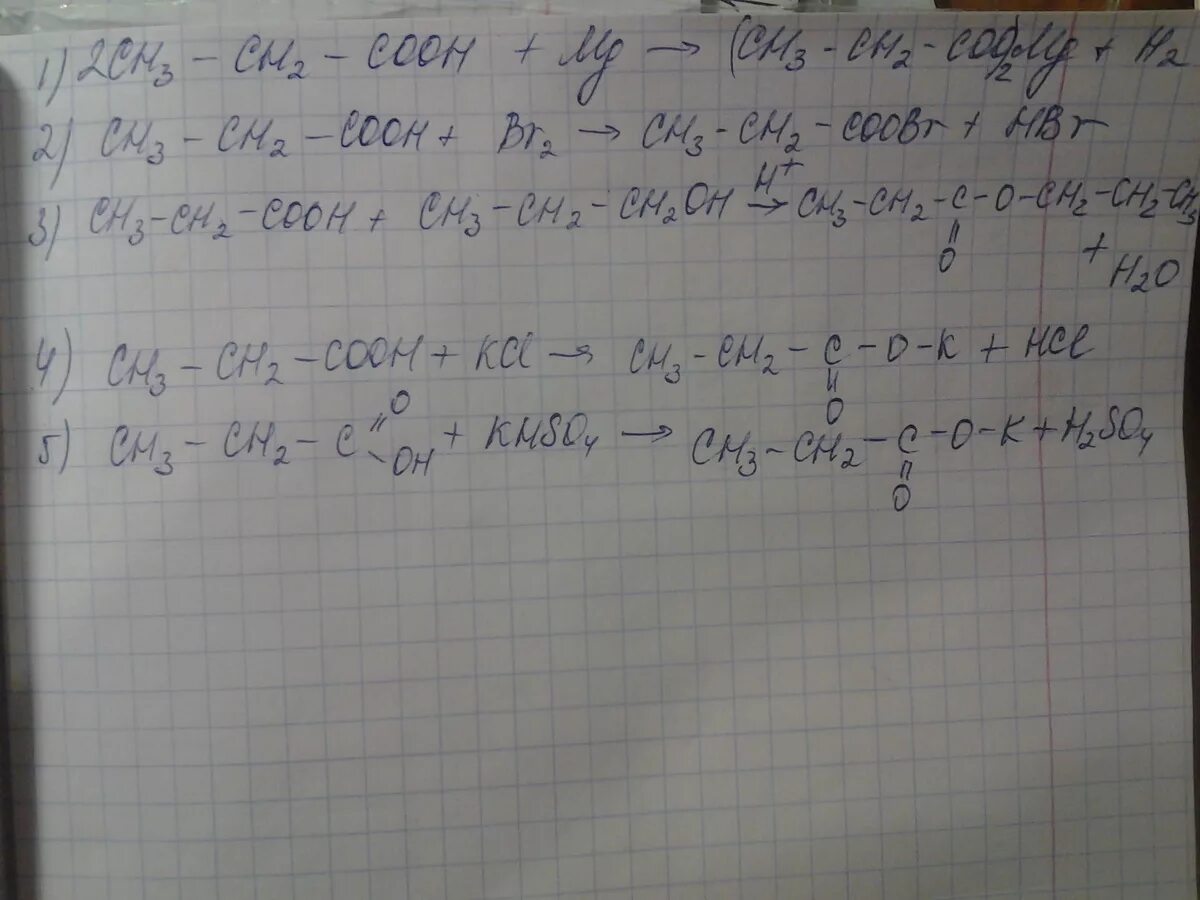 1) 2CH₃ – CH₂ – COOH + Mg → (CH₃ – CH₂ – COO)₂Mg + H₂
2) CH₃ – CH₂ – COOH + Br₂ → CH₃ – CH₂ – COOBr + HBr
3) CH₃ – CH₂ – COOH + CH₃ – CH₂ – CH₂OH H⁺→ CH₃ – CH₂ – C – O – CH₂ – CH₂ – CH₃
=
O
+ H₂O
4) CH₃ – CH₂ – COOH + KCl → CH₃ – CH₂ – C – O – K + HCl
=
O
5) CH₃ – CH₂ – C =O –OH + KHSO₄ → CH₃ – CH₂ – C – O – K + H₂SO₄
=
O